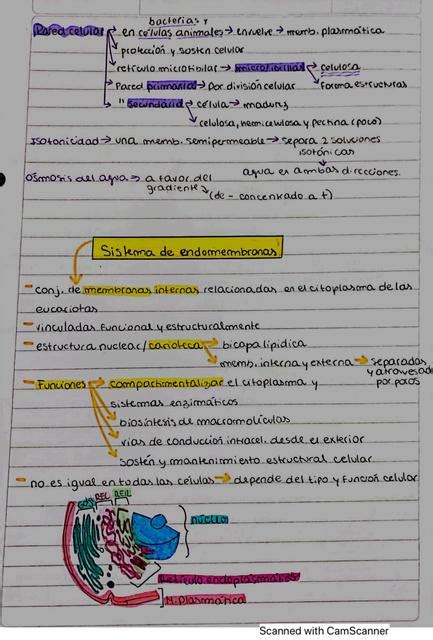 bacterias y
Pared celular → en células animales → envuelve → memb. plasmática
protección y sosten celular
retículo microfibrilar → microfibrillas → celulosa
forma estructuras
Pared primaria → por división celular
" secundaria → célula → madura
celulosa, hemicelulosa y pectina (poco)
Isotonicidad → una memb. semipermeable → separa 2 soluciones
isotónicas
agua es ambas direcciones.
Osmosis del agua → a favor del
gradiente
(de - concentrado a +)
Sistema de endomembranas
- conj. de membranas internas relacionadas en el citoplasma de las
eucariotas
- vinculadas funcional y estructuralmente
- estructura nuclear/carioteca → bicapa lipidica
memb. interna y externa → separadas
y atravesada
por poros
- Funciones → compartimentalizar el citoplasma y
sistemas enzimáticos
biosíntesis de macromoléculas
vias de conducción intracel. desde el exterior
sostén y mantenimiento estructural celular
- no es igual en todas las células → depende del tipo y función celular
REL
núcleo
Retículo endoplasmático
M. plasmática
Scanned with CamScanner